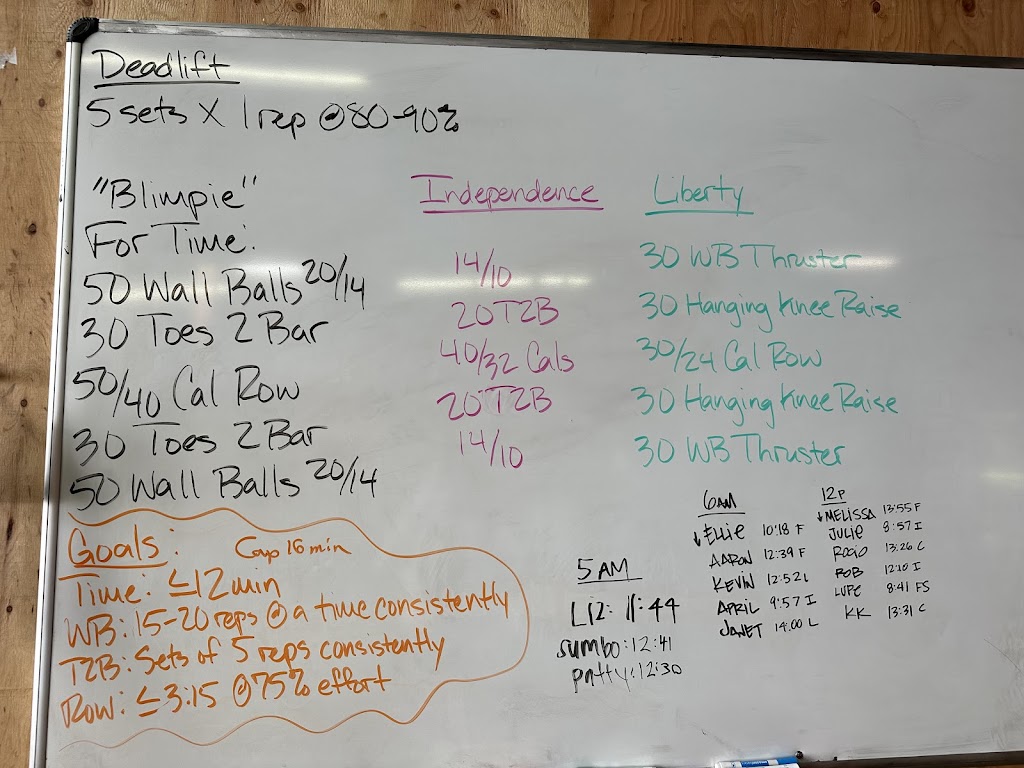 Deadlift
5 sets X 1 rep @80-90%
"Blimpie"
For Time:
50 Wall Balls 20/14
30 Toes 2 Bar
50/40 Cal Row
30 Toes 2 Bar
50 Wall Balls 20/14
Independence
14/10
20 T2B
40/32 Cals
20 T2B
14/10
Liberty
30 WB Thruster
30 Hanging Knee Raise
30/24 Cal Row
30 Hanging Knee Raise
30 WB Thruster
Goals: Cap 16 min
Time: ≤12 min
WB: 15-20 reps @ a time consistently
T2B: Sets of 5 reps consistently
Row: ≤3:15 @75% effort
5 AM
Liz: 11:44
sumbo: 12:41
patty: 12:30
6AM
↓ ELLIE 10:18 F
AARON 12:39 F
KEVIN 12:52 L
APRIL 9:57 I
JANET 14:00 L
12P
↓ MELISSA 13:55 F
JULIE :57 I
ROCIO 13:26 C
ROB 12:10 I
LUPE 8:41 FS
KK 13:31 C